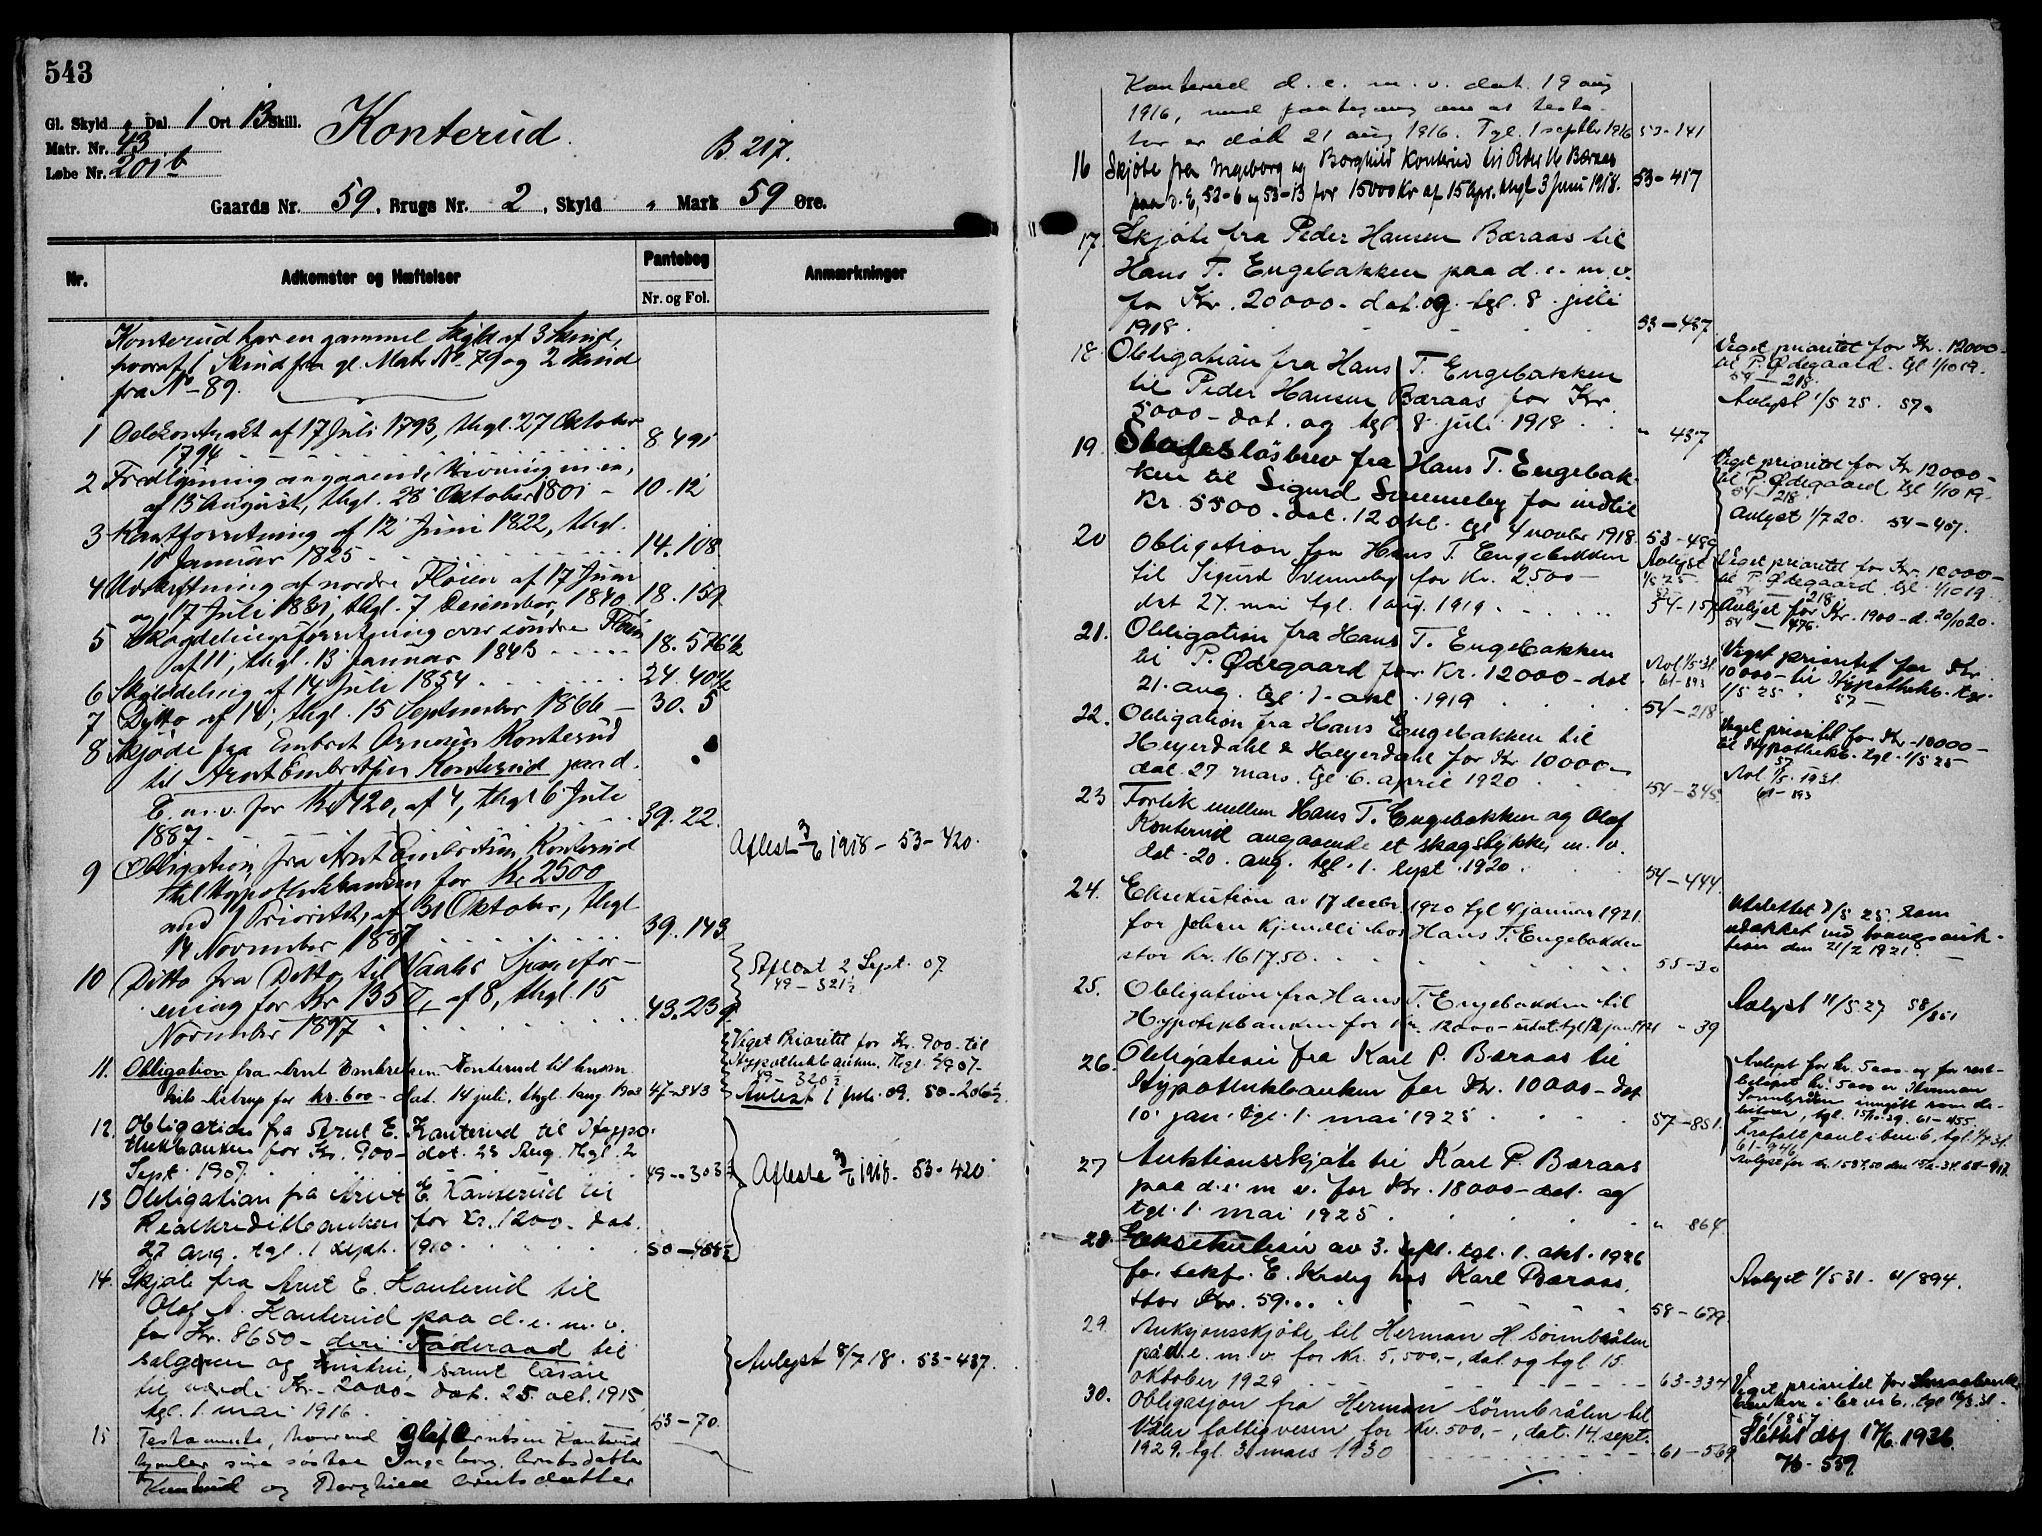 543
Gl. Skyld " Dal 1 Ort 13 Skill.
Matr. Nr. 43
Løbe Nr. 201 b
Konterud.
B 217.
Gaards Nr. 59, Brugs Nr. 2, Skyld " Mark 59 Øre.
Nr.
Adkomster og Hæftelser
Pantebog
Nr. og Fol.
Anmærkninger
Konterud har en gammel Skyld af 3 Skind,
hvoraf 1 Skind fra gl. Matr No 79 og 2 Skind
fra No - 89.
1 Odelskontrakt af 17 Juli 1793, thgl. 27 Oktober
1794 8 491
2 Fredlysning angaaende
af 13 August, thgl. 28 Oktober 1801 - 10. 12
3 af 12 Juni 1822, thgl.
10 Januar 1825 14. 108
4 Udskiftning af nordre Fløien af 17 Juni
og 17 Juli 18, thgl. 7 December, 1840 18. 159
5 Skogdelingsforretning over søndre Fløien
af 11, thgl. 13 Januar 1843 18. 526½
6 Skylddeling af 14 Juli 1854 24. 40½
7 Ditto af 10, thgl. 15 September 1866 - 30. 5
8 Skjøde fra Embret Arnesen Konterud
til Arnt Embretsen Konterud paa d.
E. m. v. for Kr 420, af 4, thgl 6 Juli
1887. 39. 22.
9 Obligation fra Arnt Embretsen Konterud
til Hypothekbanken for Kr 2500
med Prioritet, af 31 Oktober, thgl
14 November 1887 39. 143
Aflest 3/6 1918 - 53 - 420.
10 Ditto fra Ditto til Vaaler Sparefor-
ening for Kr 1357, af 8, thgl. 15
November 1897 43. 239
Aflæst 2 Sept. 07
49 - 321½
11. Obligation fra Arnt Embretsen Konterud til
Astrup for kr. 600 - dat. 14 juli, thgl. 1 aug. 1903 47 - 343
Veget Prioritet for Kr. 900 - til
Hypothekbanken. Thgl. 2/9 07.
49 - 320½
Avlest 1 febr. 09. 50 - 206½
12. Obligation fra Arnt E. Konterud til Hypo-
thekbanken for Kr. 900 - dat. 23 Aug. Thgl. 2
Sept. 1907. 49 - 303½
Afleste 3/6 1918. 53 - 420
13 Obligation fra Arnt E. Konterud til
Realkreditbanken for Kr. 1200 - dat.
27 aug. tgl. 1 sept. 1910 50 - 458½
14. Skjøte fra Arnt E. Konterud til
Olaf A. Konterud paa d. e. m. v.
for Kr. 8650 - deri Føderaad til
selgeren og hustru, samt løsøre
til værdi Kr. 2000 - dat. 25. oct. 1915,
tgl. 1. mai 1916. 53 - 70.
Avlyst 8/7 18. 53 - 437.
15 Testamente, hvorved Olaf Arntsen Konterud
sine søstre Ingeborg Arntsdatter
Konterud og Borghild Arntsdatter
Konterud d. e. m. v. dat. 19 aug
1916, med paategning om at testa-
tor er død 21 aug 1916. Tgl. 1 septbr 1916 53 - 141
16 Skjøte fra Ingeborg og Borghild Konterud til Peder H. Bæraas
paa d. E, 53 - 6 og 53 - 13 for 15000 Kr af 15 Apr. thgl 3 Juni 1918. 53 - 417
17. Skjøte fra Peder Hansen Bæraas til
Hans T. Engebakken paa d. e. m. v.
for Kr. 20000 - dat. og tgl. 8. juli
1918. 53 - 437
18 Obligation fra Hans T. Engebakken
til Peder Hansen Bæraas for Kr.
5000 - dat. og tgl 8 juli 1918 " 437
Veget prioritet for Kr. 12000 -
til P. Ødegaard. tgl 1/10 19.
54 - 218.
Avlyst 1/5 25. 57 -
19. Skadesløsbrev fra Hans T. Engebak-
ken til Sigurd Svenneby for indtil
Kr. 5500 - dat. 12 okt. tgl 4 novbr 1918. 53 - 489
Veget prioritet for Kr 12000 -
til P. Ødegaard tgl 1/10 19.
54 - 218
Avlyst 1/7 20. 54 - 407.
20 Obligation fra Hans T. Engebakken
til Sigurd Svenneby for Kr. 2500 -
dat 27. mai tgl. 1 aug. 1919 54 - 157
Avlyst
1/5 25
57
Veget prioritet for Kr 12000 -
til P. Ødegaard tgl. 1/10 19
54 - 218.
Avlyst for Kr. 1900 - d. 20/10 20.
54 - 476.
21. Obligation fra Hans T. Engebakken
til P. Ødegaard for Kr. 12000 - dat
21. aug. tgl. 1. okt. 1919 54 - 218
Avl 1/5 31
61 - 893
Veget prioritet for Kr.
10000 - til Hypothekb. tgl.
1/5 25 57 -
22. Obligation fra Hans Engebakken til
Heyerdahl & Heyerdahl for Kr 10000 -
dat. 27 mars. tgl. 6. april 1920 54 - 345
Veget prioritet for Kr. 10000 -
til Hypothekb. tgl. 1/5 25 -
57
Avl 1/5. 1931.
61 - 893
23 Forlik mellem Hans T. Engebakken og Olaf
Konterud angaaende et skogstykke m. v.
dat. 20. aug. tgl. 1. sept. 1920. 54 - 444.
24. Eksekution av 17 decbr. 1920 tgl 4 januar 1921.
for Johan Kjendli hos Hans T. Engebakken
stor kr. 1617.50 55 - 30
Utslettet 1/5 25. som
udækket ved tvangsauk-
tion den 21/2 1921. -
25. Obligation fra Hans T. Engebakken til
Hypotekbanken for Kr. 12000 - udat. tgl 12 jan 1921 " 39
Avlyst 11/5. 27 58/851
26. Obligation fra Karl P. Bæraas til
Hypothekbanken for Kr. 10000 - dat
10. jan. tgl. 1. mai 1925 57 - 851.
Avlyst for kr. 5000 - og for rest-
beløpet kr. 5000 er Herman
Sønnbråten inngått som de-
bitor, tgl. 15/10 29. 61 - 455
Frafalt pant i brnr. 6, tgl. 1/7 31.
61 - 946
27 Auktionsskjøte til Karl P. Bæraas
paa d. e. m. v. for Kr. 18000 - dat. og
tgl. 1. mai 1925 " 864.
28. Eksekution av 3. sept. tgl. 1. okt. 1926
for E. Krog hos Karl Bæraas,
stor Kr. 59 58 - 679
Avlyst 1/5 31. 61/894.
29. Auksjonsskjøte til Herman H. Sønnbråten
på d. e. m. v. for Kr. 5,500,-, dat og tgl. 15.
oktober 1929 63 - 334
30. Obligasjon fra Herman Sønnbråten til
Våler fattigvesen for Kr. 500,-, dat. 14. sept.
1929, tgl. 3. mars 1930 61 - 569
Veget prioritet for
banken i br. nr 6, tgl.
61/857
Slettet dbf 17/6. 1936.
76 - 559